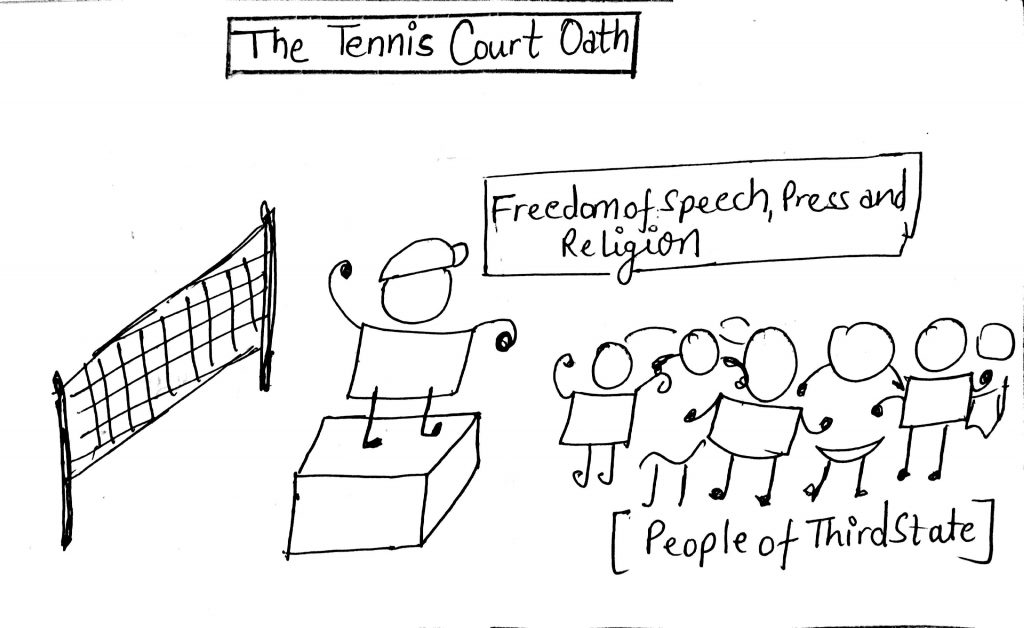 The Tennis Court Oath
Freedom of Speech, Press and
Religion
[People of Third State]